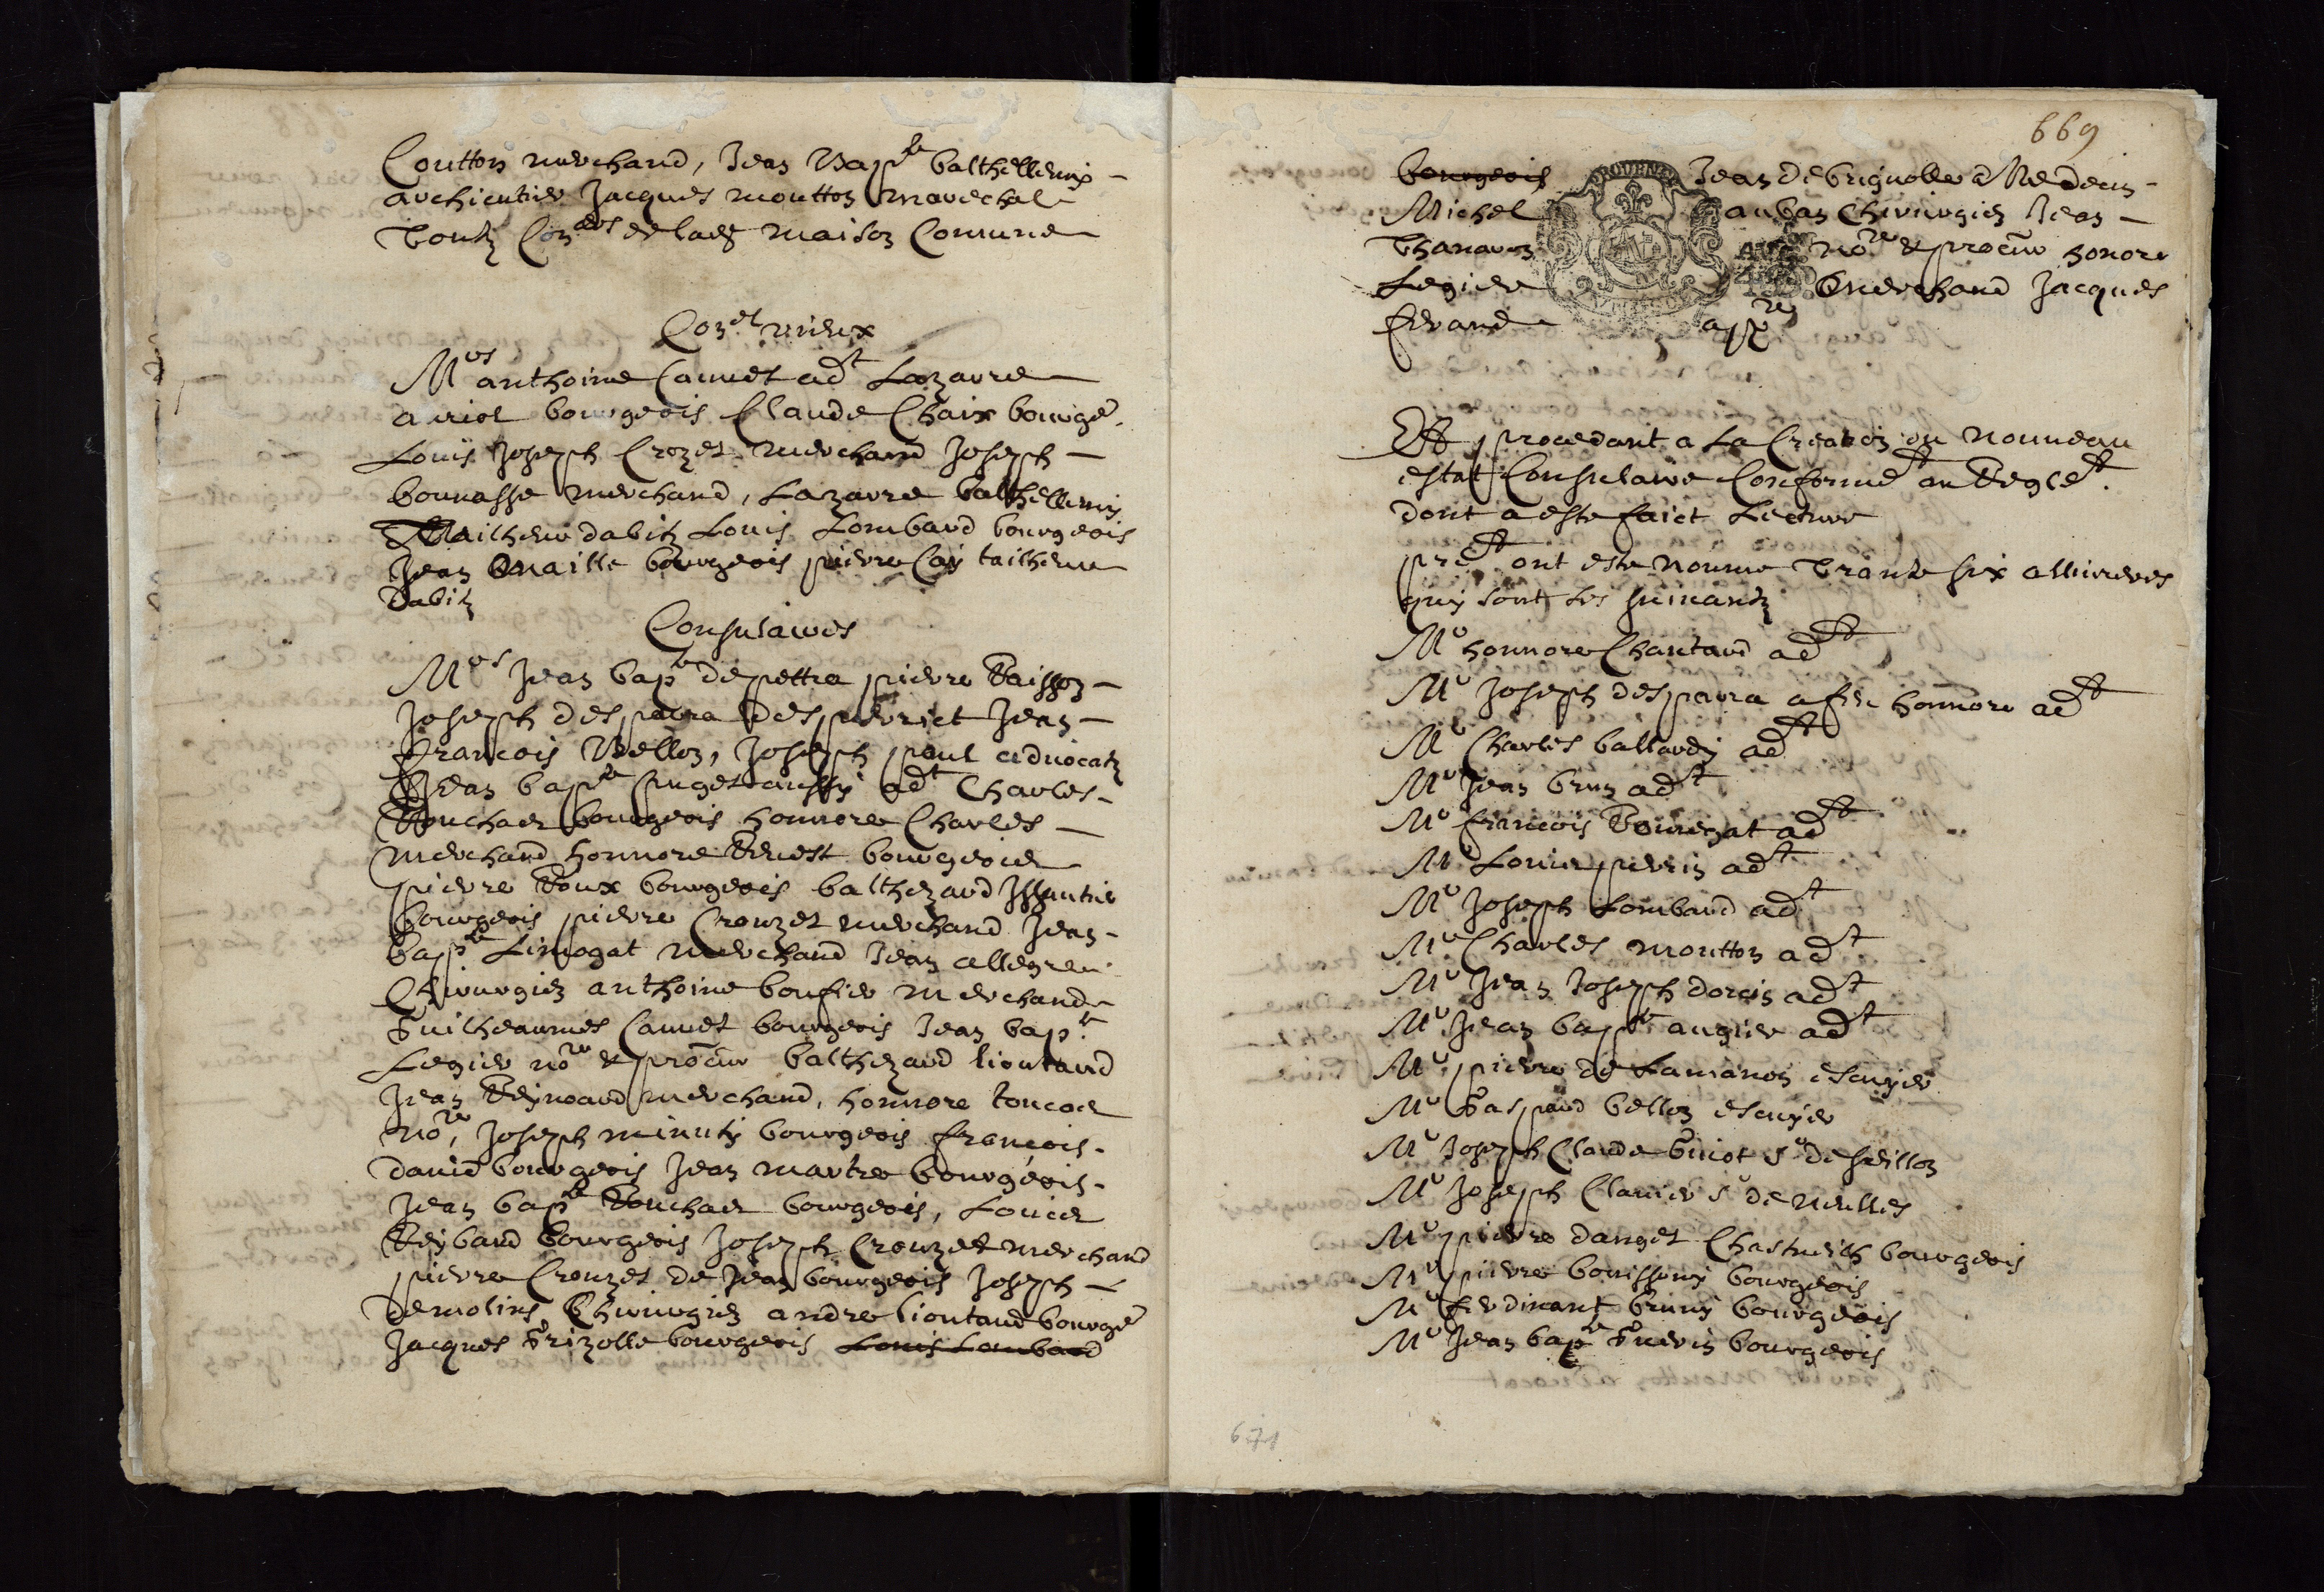 Coutton merchand, Jean Bap^te balthellemy
archientier Jacques moutton marechal
toutz Con^ers de lad maison Comune
Con^el vieux
M^es anthoine Cauuet ad^t Lazarre
auriol bourgeois Claude Chaix bourge
Louis Joseph Crozet merchand Joseph
bounasse merchand, Lazarre balthellemy
Tailheur dabitz Louis Lombard bourgeois
Jean Maille bourgeois pierre Coy tailheur
dabitz
Consulaires
M^es Jean bap^te de pettra pierre Raisson
Joseph desparra des pierrict Jean
francois Bellon, Joseph paul aduocatz
Jean bap^te puget aussy ad^t Charles
Rouchas bourgeois honnore Charles
merchand honnore bourgeois
pierre Roux bourgeois balthezard
bourgeois pierre Crouzet merchand Jean
bap^te Limogat merchand Jean allegre
Chirurgien anthoine boufier merchand
Guilheaumes Cauuet bourgeois Jean bap^te
Legier no^re & procur balthezard lioutaud
Jean Reynoard merchand, honnore toucas
no^re, Joseph minuty bourgeois francois
dauid bourgeois Jean martre bourgeois
Jean bap^te Rouchas bourgeois, Louis
Reybaud bourgeois Joseph Crouzet merchand
pierre Crouzet de Jean bourgeois Joseph
demolins Chirurgien andre lioutaud bourge
Jacques Frizolle bourgeois Louis Lombard
669
bourgeois Jean de brignolle Medecin
Michel auban Chirurgien Jean
thanaron no^re & procur honore
Legier merchand Jacques
ferand app^re
Et procedant a La Creation du nouueau
estat Consulaire Conforme^t au Regle^t
dont a este faict Lecture
pre^t ont este nomme trante six alliurés
quy sont les suiuantz
M^e honnore Chautard ad^t
M^e Joseph desparra a feu honnore ad^t
M^e Charles ballardy ad^t
M^e Jean brun ad^t
M^e francois Bouregat ad^t
M Louis perrin ad^t
M^e Joseph Lombard ad^t
M^e Charles moutton ad^t
M^e Jean Joseph dorcin ad^t
M^e Jean bap^te augier ad^t
M^e pierre de Lamanon escuyer
M^e Gaspard bellon escuyer
M^e Joseph Claude Guiot s^r de seillon
M^e Joseph Clauier s^r de neulles
M^e pierre dauget Chasteuilh bourgeois
M^e pierre bouissony bourgeois
M^e ferdinant bruny bourgeois
M^e Jean bap^te Guerin bourgeois
671